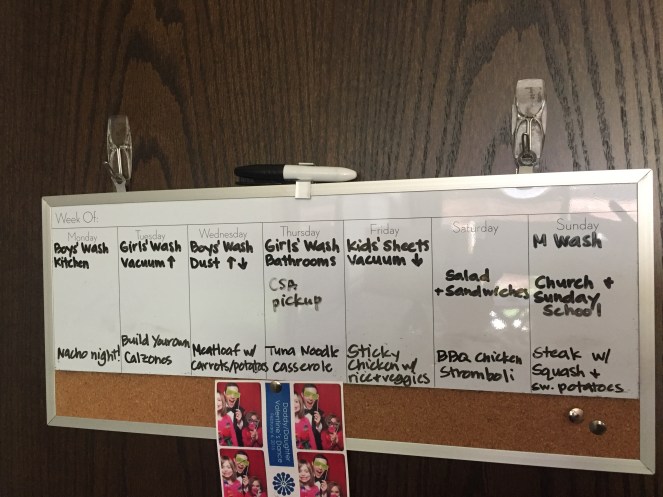 Week Of:
Monday
Boys' Wash
Kitchen
Nacho night!
Tuesday
Girls' Wash
Vacuum ↑
Build Your own
Calzones
Wednesday
Boys' Wash
Dust ↑↓
Meatloaf w/
carrots/potatoes
Thursday
Girls' Wash
Bathrooms
CSA
pickup
Tuna Noodle
Casserole
Friday
Kids' Sheets
Vacuum ↓
Sticky
Chicken w/
rice + veggies
Saturday
Salad
+ Sandwiches
BBQ Chicken
Stromboli
Sunday
M Wash
Church +
Sunday
School
Steak w/
Squash +
sw. potatoes
Daddy/Daughter
Valentine's Dance